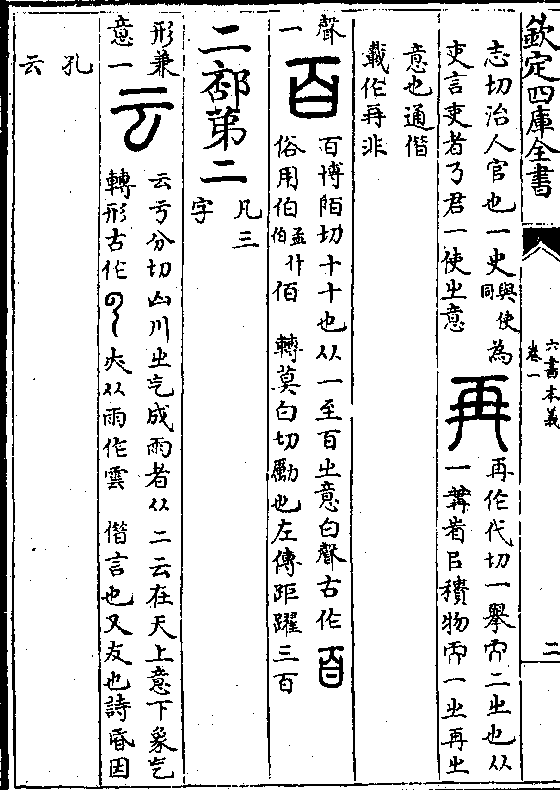 欽定四庫全書
六書本義
卷一
二
志切治人官也一史與使同為
吏言吏者乃君一使㞢意
再
再作代切一舉而二㞢也从
一冓省㠯積物而一㞢再㞢
意也通偕
載作再非
聲
一
百
百博陌切十十也从一至百㞢意白聲古作百
俗用伯伯孟什佰 轉莫白切勵也左傳距躍三百
二部第二
凡三
字
形兼
意一
云
云亏分切山川㞢气成雨者从二云在天上意下象气
轉形古作 夾从雨作雲 偕言也又友也詩昏因
孔
云